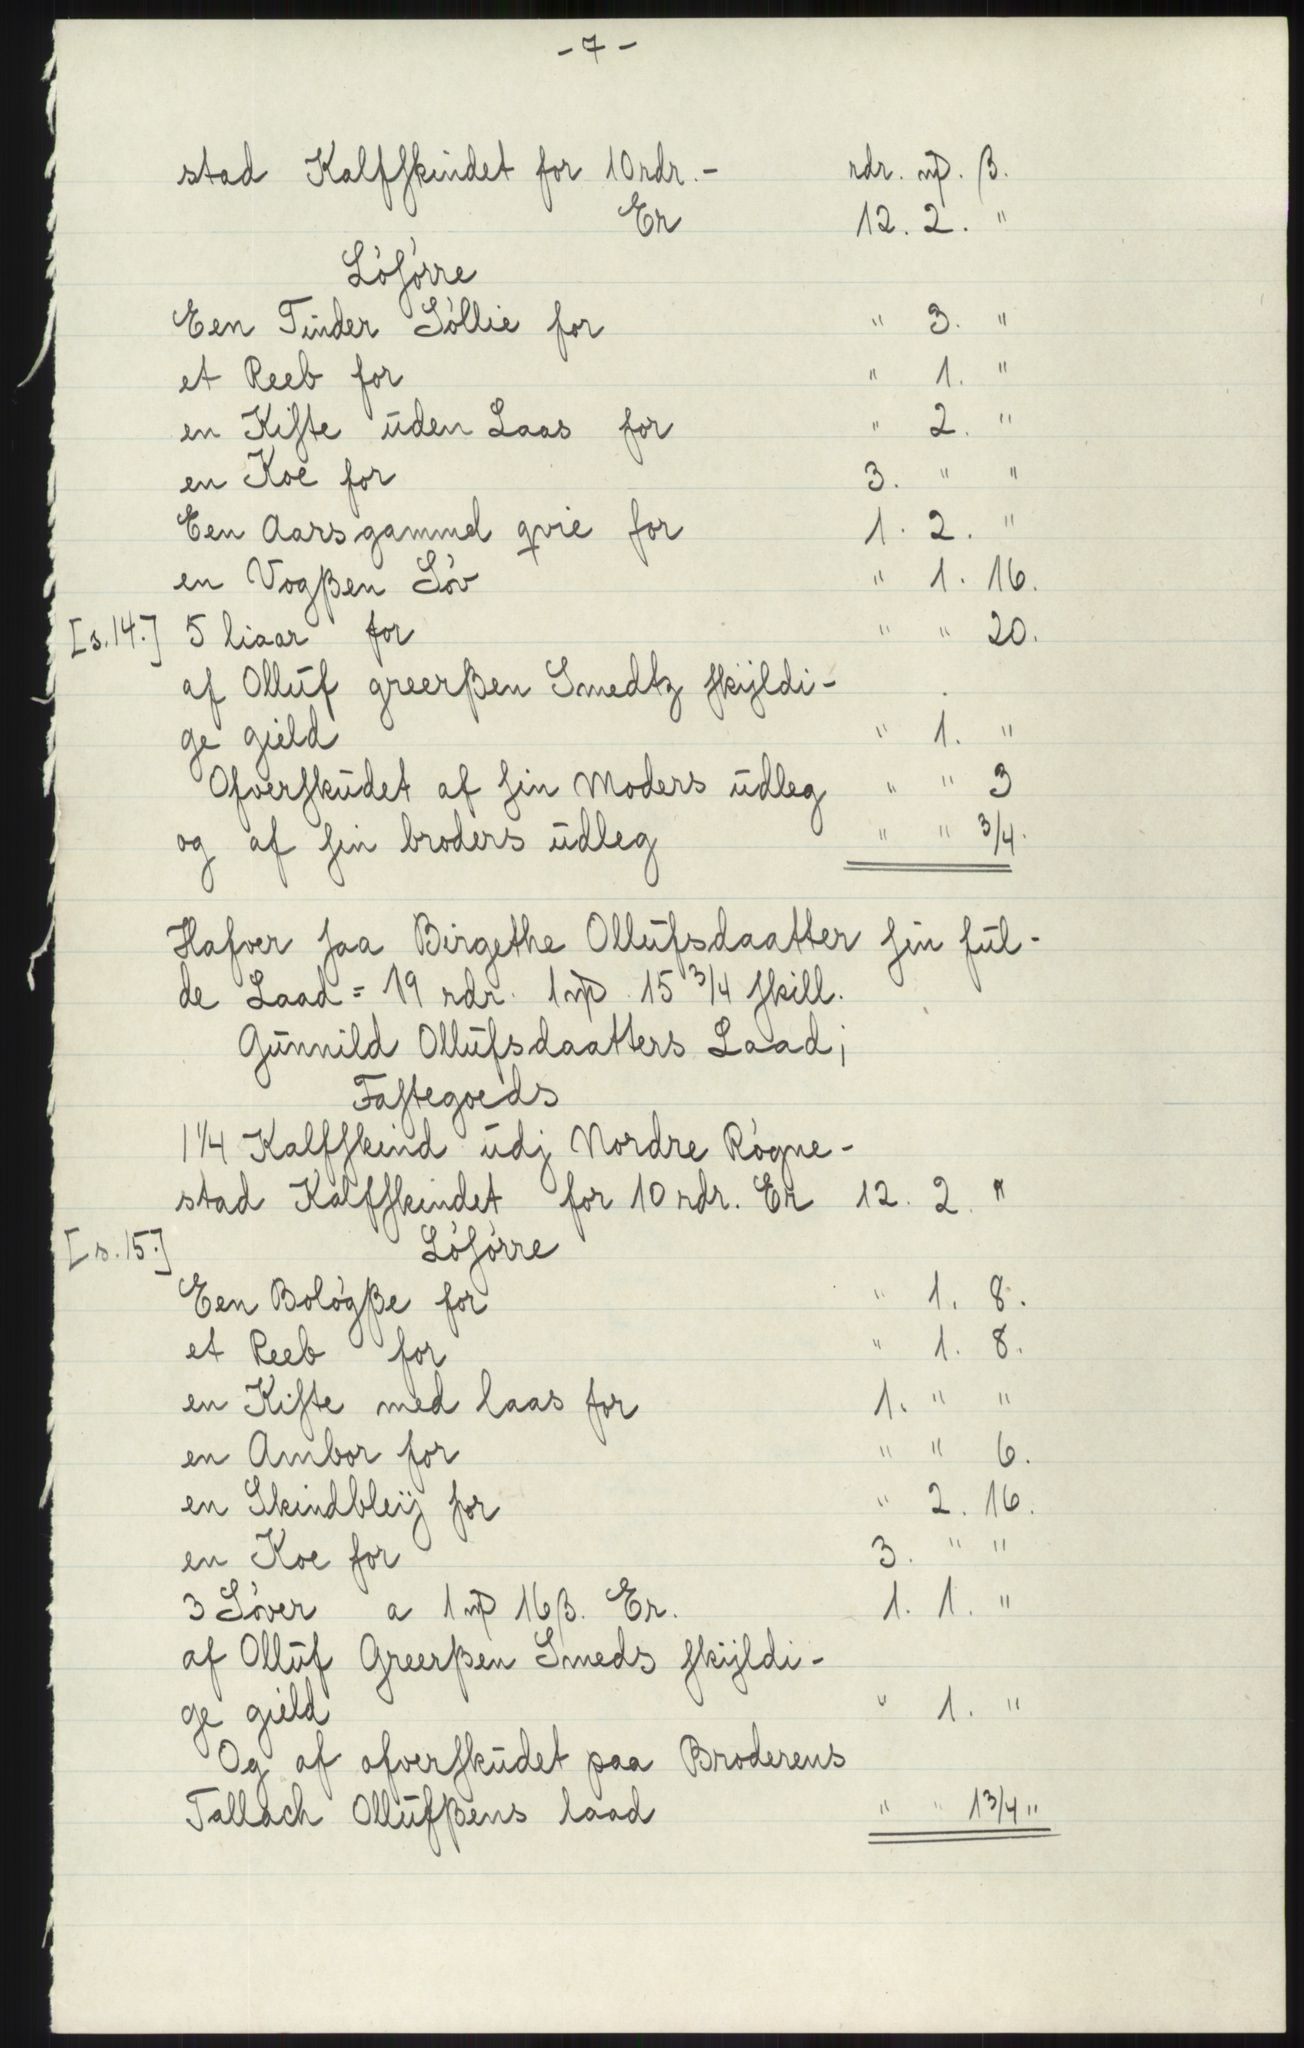 - 7 -
stad Kalfskindet for 10 rdr. - rdr. mƥ. β.
Er 12. 2. "
Lósórre
Een Tinder Sóllie for " 3. "
et Reeb for " 1. "
en Kiste ūden Laas for " 2. "
en Koe for 3. " "
Een Aarsgammel qvie for 1. 2. "
en Vogßen Sóv " 1. 16.
[s.14.] 5 liaar for " " 20.
af Ollūf greerßen Smedtz skÿldi-
ge gield " 1. "
Ofverskūdet af sin Moders ūdleg " " 3
og af sin broders ūdleg " " 3/4.
Hafver saa Birgethe Ollūfsdaatter sin fūl-
de Laad = 19 rdr. 1 mƥ 15 3/4 skill.
Gūnnild Ollūfsdaatters Laad;
Fastegoeds
1 1/4 Kalfskind ūdj Nordre Rógne-
stad Kalfskindet for 10 rdr. Er 12. 2. "
[s.15.] Lósórre
Een Bológße for " 1. 8.
et Reeb for " 1. 8.
en Kiste med laas for 1. " "
en Ambor for " " 6.
en Skindbleÿ for " 2. 16.
en Koe for 3. " "
3 Sóver a 1 mƥ 16 β. Er. 1. 1. "
af Ollūf Greerßen Smeds skÿldi-
ge gield " 1. "
Og af ofverskūdet paa Broderens
Tallach Ollūfßens laad " " 1 3/4 "